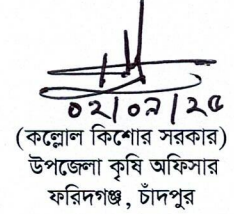 ০২/০৯/২৫
(কল্লোল কিশোর সরকার)
উপজেলা কৃষি অফিসার
ফরিদগঞ্জ, চাঁদপুর